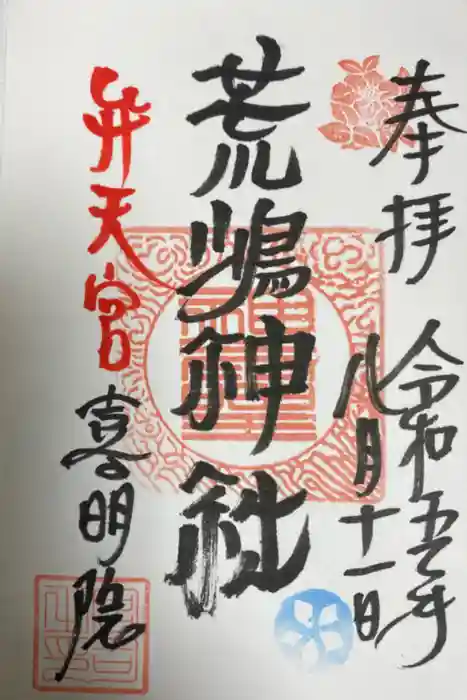 奉拝
令和五年
八月十一日
荒嶋神社
弁天宮
喜明院